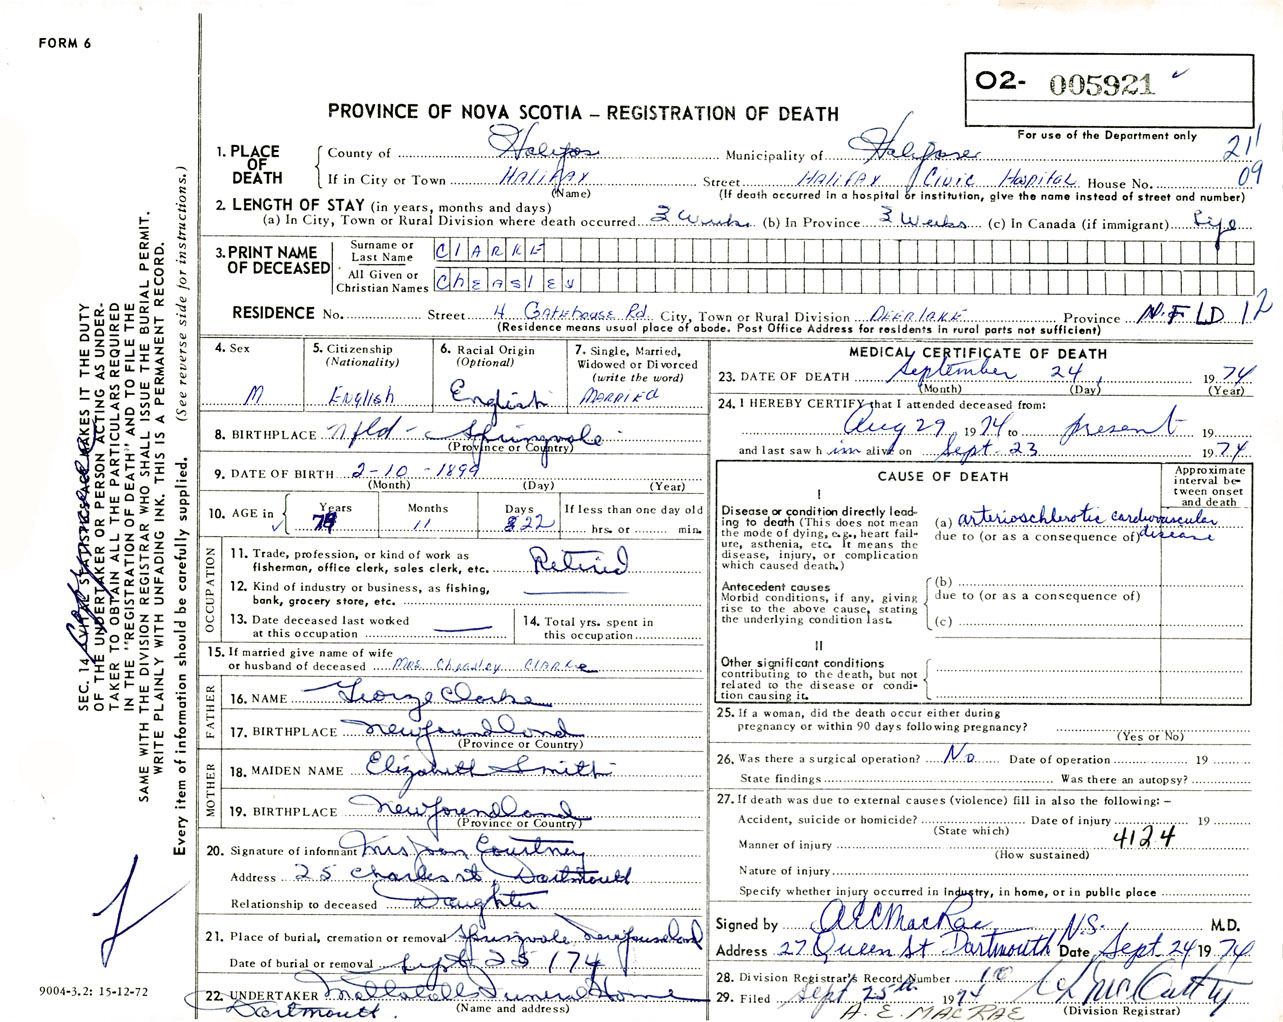 FORM 6
O2- 005921
For use of the Department only
PROVINCE OF NOVA SCOTIA – REGISTRATION OF DEATH
21
09
1. PLACE OF DEATH
County of Halifax Municipality of Halifax
If in City or Town HALIFAX Street HALIFAX CIVIC HOSPITAL House No.
(Name) (If death occurred in a hospital or institution, give the name instead of street and number)
2. LENGTH OF STAY (in years, months and days)
(a) In City, Town or Rural Division where death occurred 3 Weeks (b) In Province 3 Weeks (c) In Canada (if immigrant) Life
3. PRINT NAME OF DECEASED
Surname or Last Name CLARKE
All Given or Christian Names CHEASLEY
RESIDENCE No. Street 4 GATEHOUSE Rd City, Town or Rural Division DEER LAKE Province N.F LD 12
(Residence means usual place of abode. Post Office Address for residents in rural parts not sufficient)
4. Sex M
5. Citizenship (Nationality) ENGLISH
6. Racial Origin (Optional) English
7. Single, Married, Widowed or Divorced (write the word) MARRIED
8. BIRTHPLACE Nfld - Springvale
(Province or Country)
9. DATE OF BIRTH 2-10-1899
(Month) (Day) (Year)
10. AGE in Years Months 11 Days 22 If less than one day old hrs. or min.
OCCUPATION
11. Trade, profession, or kind of work as fisherman, office clerk, sales clerk, etc. Retired
12. Kind of industry or business, as fishing, bank, grocery store, etc.
13. Date deceased last worked at this occupation
14. Total yrs. spent in this occupation
15. If married give name of wife or husband of deceased MRS Cheasley CLARKE
FATHER
16. NAME George Clarke
17. BIRTHPLACE Newfoundland
(Province or Country)
MOTHER
18. MAIDEN NAME Elizabeth Smith
19. BIRTHPLACE Newfoundland
(Province or Country)
20. Signature of informant Mrs Courtney
Address 25 Charles st Dartmouth
Relationship to deceased Daughter
21. Place of burial, cremation or removal Springvale Newfoundland
Date of burial or removal Sept 25/74
22. UNDERTAKER Funeral Home
Dartmouth. (Name and address)
MEDICAL CERTIFICATE OF DEATH
23. DATE OF DEATH September 24, 1974
(Month) (Day) (Year)
24. I HEREBY CERTIFY that I attended deceased from:
Aug 29 1974 to present 19
and last saw him alive on Sept. 23 1974
CAUSE OF DEATH
Approximate interval between onset and death
I
Disease or condition directly leading to death (This does not mean the mode of dying, e.g., heart failure, asthenia, etc. It means the disease, injury, or complication which caused death.)
(a) arterioschlerotic cardiovascular
due to (or as a consequence of) disease
Antecedent causes
Morbid conditions, if any, giving rise to the above cause, stating the underlying condition last.
(b)
due to (or as a consequence of)
(c)
II
Other significant conditions
contributing to the death, but not related to the disease or condition causing it.
25. If a woman, did the death occur either during pregnancy or within 90 days following pregnancy?
(Yes or No)
26. Was there a surgical operation? No Date of operation 19
State findings Was there an autopsy?
27. If death was due to external causes (violence) fill in also the following: –
Accident, suicide or homicide? Date of injury 19
(State which) 4124
Manner of injury
(How sustained)
Nature of injury
Specify whether injury occurred in industry, in home, or in public place
Signed by A E C MacRae N.S. M.D.
Address 27 Queen St Dartmouth Date Sept 24 1974
28. Division Registrar's Record Number
29. Filed Sept 25th 1974
(Division Registrar)
A. E. MACRAE
SEC. 14 MAKES IT THE DUTY
OF THE UNDERTAKER OR PERSON ACTING AS UNDER-
TAKER TO OBTAIN ALL THE PARTICULARS REQUIRED
IN THE "REGISTRATION OF DEATH" AND TO FILE THE
SAME WITH THE DIVISION REGISTRAR WHO SHALL ISSUE THE BURIAL PERMIT.
WRITE PLAINLY WITH UNFADING INK. THIS IS A PERMANENT RECORD.
Every item of information should be carefully supplied. (See reverse side for instructions.)
9004-3.2: 15-12-72